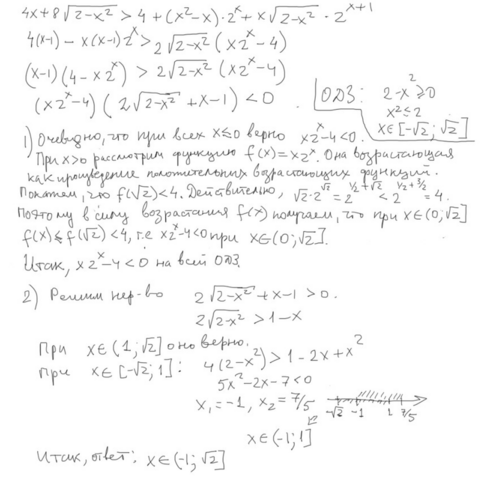 4x+8√(2-x²) > 4+(x²-x)·2ˣ+x√(2-x²)·2ˣ⁺¹
4(x-1)-x(x-1)2ˣ > 2√(2-x²) (x2ˣ-4)
(x-1)(4-x2ˣ) > 2√(2-x²) (x2ˣ-4)
(x2ˣ-4)(2√(2-x²)+x-1)<0.
ОДЗ: 2-x²≥0
x²≤2
x∈[-√2; √2]
1) Очевидно, что при всех x≤0 верно x2ˣ-4<0.
При x>0 рассмотрим функцию f(x)=x2ˣ. Она возрастающая
как произведение положительных возрастающих функций.
Покажем, что f(√2)<4. Действительно, √2·2^√2 = 2^(1/2+√2) < 2^(1/2+3/2) = 4.
Поэтому в силу возрастания f(x) получаем, что при x∈(0;√2]
f(x)≤f(√2)<4, т.е x2ˣ-4<0 при x∈(0;√2].
Итак, x2ˣ-4<0 на всей ОДЗ.
2) Решим нер-во 2√(2-x²)+x-1>0.
2√(2-x²) > 1-x
При x∈(1;√2] оно верно.
При x∈[-√2;1]: 4(2-x²)>1-2x+x²
5x²-2x-7<0
x₁=-1, x₂=7/5
-√2 -1 1 7/5
x∈(-1;1]
Итак, ответ: x∈(-1;√2]